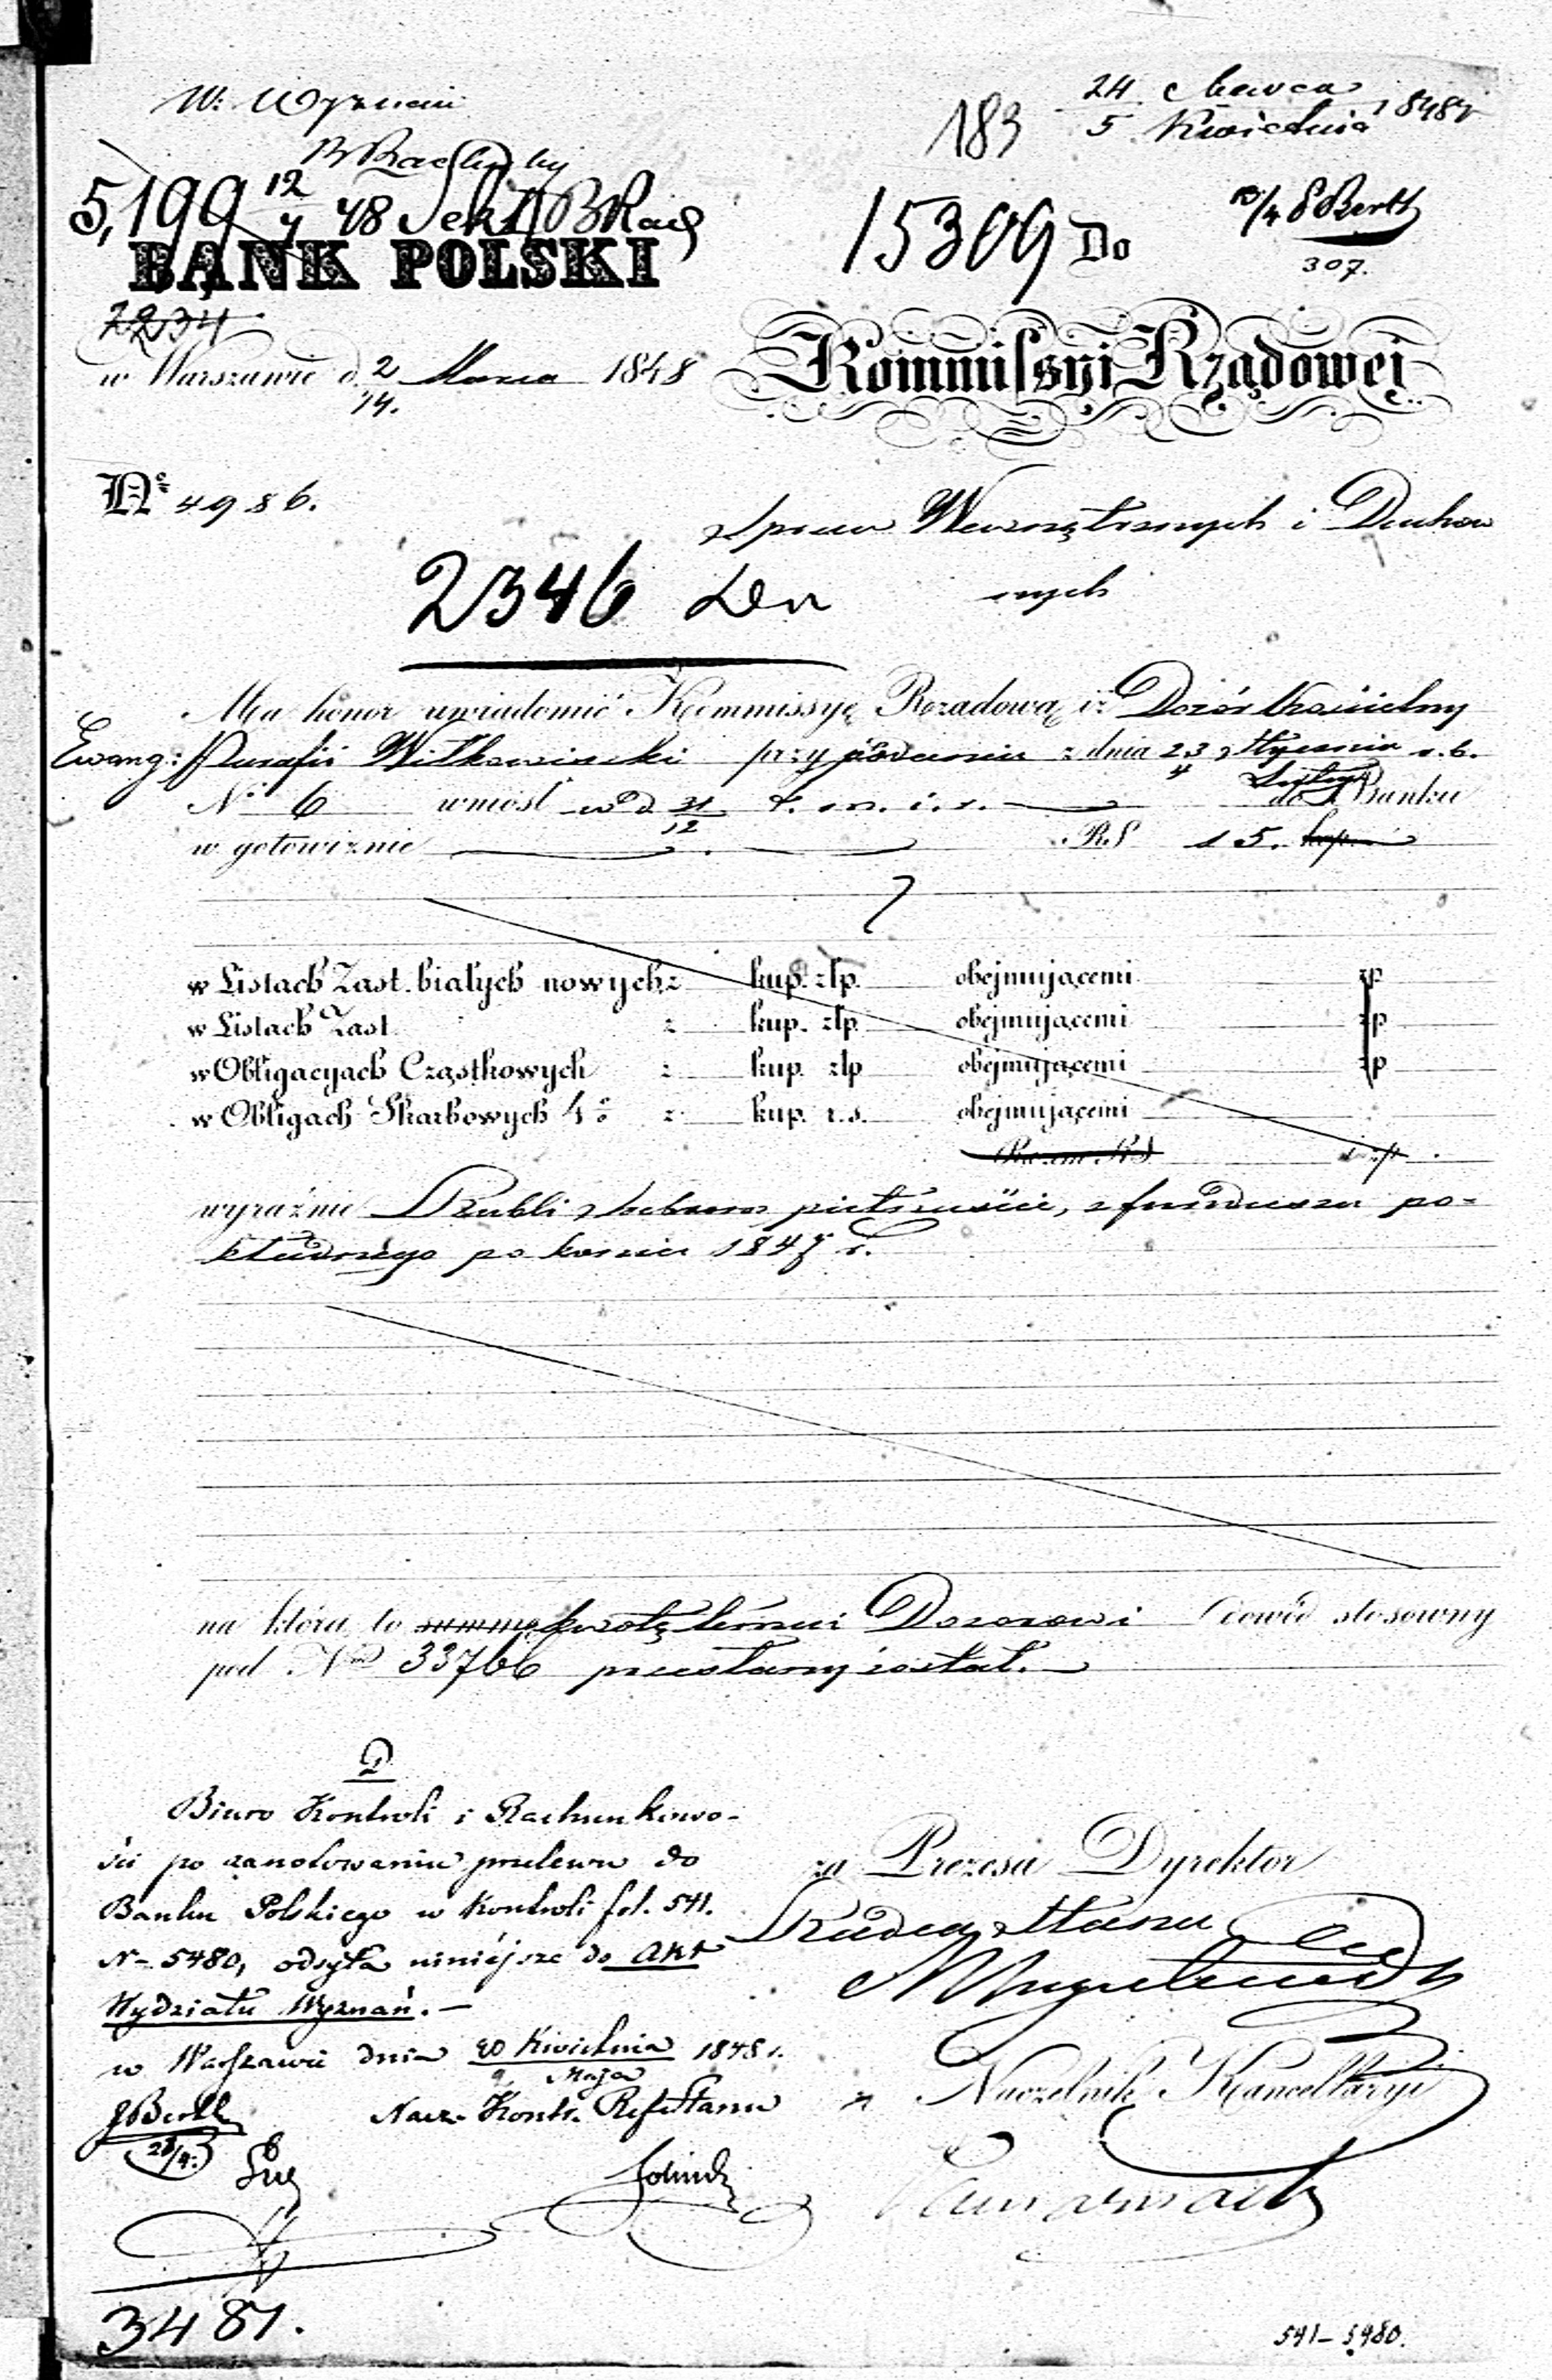 W: Wyznań
183
24 Marca
5 Kwietnia 1848 r
5,199 12/4 48 Sekt
15309 Do
307.
BANK POLSKI
2234
w Warszawie d. 2/14. Marca 1848
Kommissyi Rządowej
No 4986.
Spraw Wewnętrznych i Duchow
nych
2346
Ma honor uwiadomić Kommissyę Rządową iż Dozór Kościelny
Ewang: Parafii przy podaniu z dnia 23/4 Stycznia r. b.
No 6 wniósł w d 31/12 t. m. i. r. do Banku
w gotowiznie R.S 15. kop.
w Listach Zast. białych nowych z kup. złp. obejmującemi zp
w Listach Zast. z kup. złp. obejmującemi zp
w Obligacyach Cząstkowych z kup. złp obejmującemi zp
w Obligach Skarbowych 4% z kup. r.s. obejmującemi
Razem RS
wyraźnie Rubli srebrem piętnaście, z funduszu po-
kładnego po koniec 1847 r.
na którą to summę kwotę temuż Dozorowi dowód stosowny
pod No 33766 przesłany został.
D
Biuro Kontroli i Rachunkowo-
ści po zanotowaniu przelewu do
Banku Polskiego w Kontroli fol. 541.
N- 5480, odsyła niniejsze do Akt
Wydziału Wyznań. —
w Warszawie dnia 20 Kwietnia 1848 r.
Maja
Nacz. Kontr. Ref. Stanu
28/4.
za Prezesa Dyrektor
Radca Stanu
Naczelnik Kancellaryi
3481.
541 – 5480.